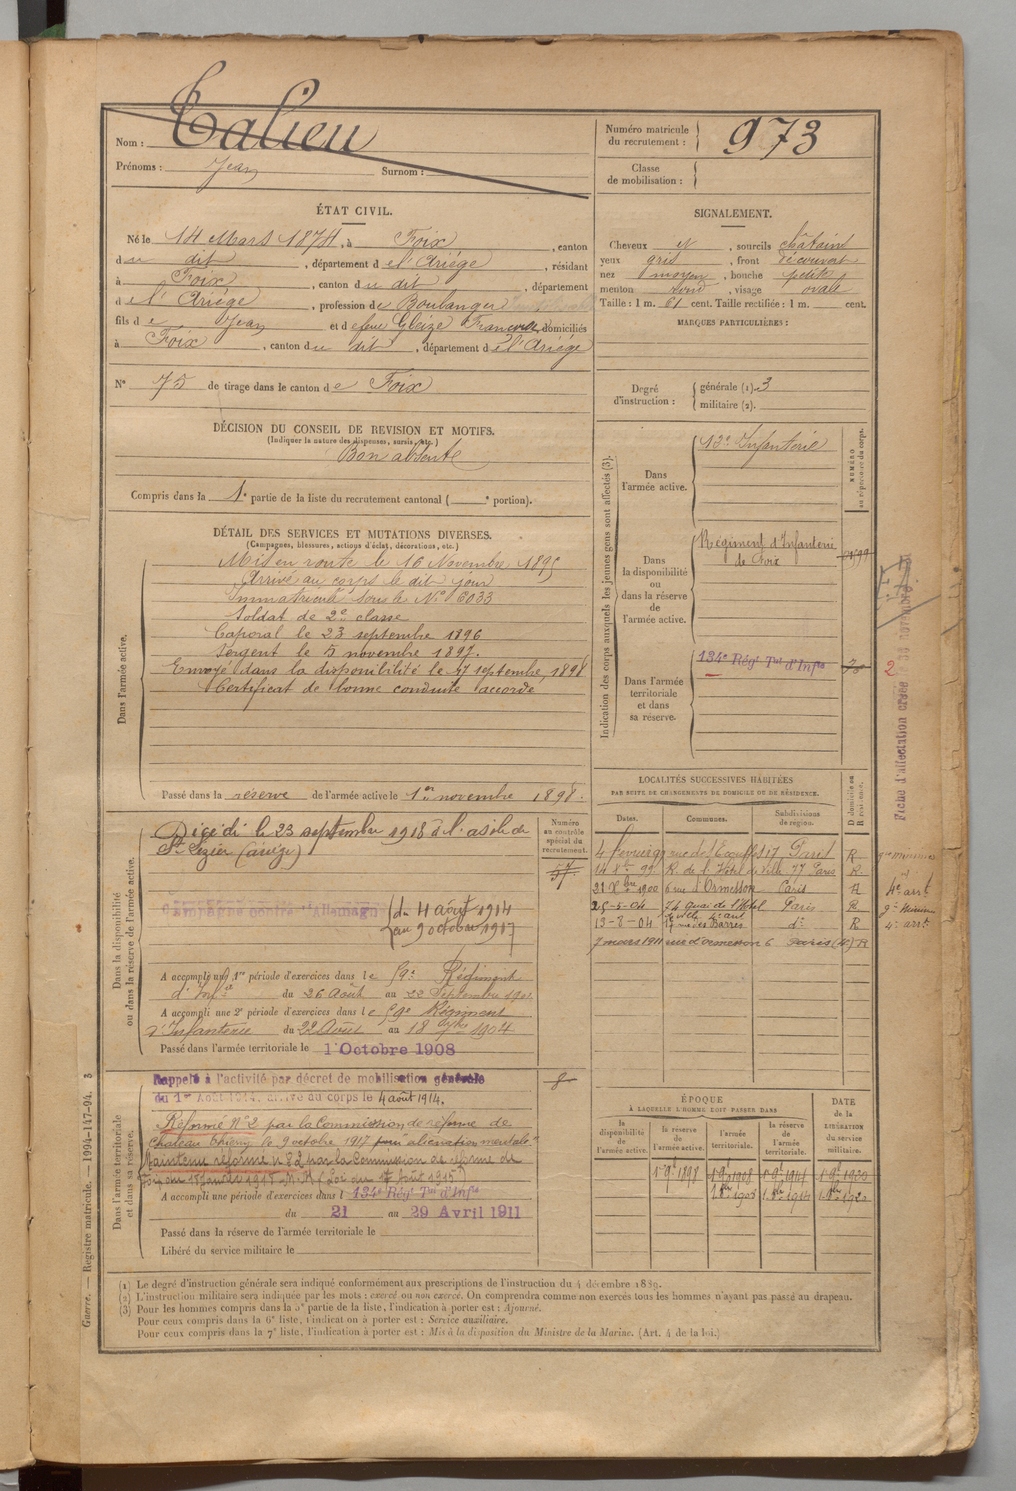 Nom : Talieu
Prénoms : Jean Surnom :
Numéro matricule du recrutement : 973
Classe de mobilisation :
ÉTAT CIVIL.
Né le 14 Mars 1874, à Foix, canton
du dit, département de l'Ariége, résidant
à Foix, canton du dit département
de l'Ariége, profession de Boulanger
fils de Jean et de feue Gleize domiciliés
à Foix, canton du dit, département de l'Ariége
N° 75 de tirage dans le canton de Foix
DÉCISION DU CONSEIL DE REVISION ET MOTIFS.
(Indiquer la nature des dispenses, sursis, etc.)
Bon absent
Compris dans la 1e partie de la liste du recrutement cantonal ( e portion).
SIGNALEMENT.
Cheveux et, sourcils châtains
yeux gris, front découvert
nez moyen, bouche petite
menton rond, visage ovale
Taille : 1 m. 61 cent. Taille rectifiée : 1 m. cent.
MARQUES PARTICULIÈRES :
Degré d'instruction : générale (1). 3
militaire (2).
DÉTAIL DES SERVICES ET MUTATIONS DIVERSES.
(Campagnes, blessures, actions d'éclat, décorations, etc.)
Dans l'armée active.
Mis en route le 16 Novembre 1895
Arrivé au corps le dit jour
Immatriculé sous le N° 6033
Soldat de 2e classe
Caporal le 23 septembre 1896
Sergent le 5 novembre 1897.
Envoyé dans la disponibilité le 17 septembre 1898
Certificat de bonne conduite accordé
Passé dans la réserve de l'armée active le 1er novembre 1898.
Indication des corps auxquels les jeunes gens sont affectés (3).
NUMÉRO au répertoire du corps.
Dans l'armée active. 13e Infanterie
Dans la disponibilité ou dans la réserve de l'armée active.
Régiment d'Infanterie
de Foix
Dans l'armée territoriale et dans sa réserve.
134e Régt Tal d'Infie
Fiche d'affectation créée
2
LOCALITÉS SUCCESSIVES HABITÉES
PAR SUITE DE CHANGEMENTS DE DOMICILE OU DE RÉSIDENCE.
Dates. Communes. Subdivisions de région. D domicile ou R résidence.
4 février 99 rue des Ecouffes 17 Paris R
14 8bre 99 R. de l'Hôtel de Ville 77 Paris R.
21 Xbre 1900 6 rue d'Ormesson Paris R 4e arrt
25-5-04 74 Quai de l'Hôtel de Ville 4e arrt Paris R
13-8-04 17 rue des Barres do R 4e arrt
7 mars 1911 rue d'ormesson 6 Paris (4) R
Dans la disponibilité ou dans la réserve de l'armée active.
Numéro au contrôle spécial du recrutement.
57
Décédé le 23 septembre 1918 à l'asile de
St Lizier (ariège)
Campagne contre l'Allemagne du 4 août 1914
au 9 octobre 1917
A accompli une 1re période d'exercices dans le 59e Régiment
d'Infie du 26 Août au 22 Septembre
A accompli une 2e période d'exercices dans le 59e Régiment
d'Infanterie du 22 Août au 18 1904
Passé dans l'armée territoriale le 1 Octobre 1908
Dans l'armée territoriale et dans sa réserve.
Rappelé à l'activité par décret de mobilisation générale
du 1er Août 1914, arrivé au corps le 4 août 1914.
8
Réformé N° 2 par la Commission de réforme de
Chateau Thierry le 9 octobre 1917 pour alienation mentale
Maintenu réformé n° 2 par la Commission de réforme de
A accompli une période d'exercices dans l 134e Régt Tal d'Infie
du 21 au 29 Avril 1911
Passé dans la réserve de l'armée territoriale le
Libéré du service militaire le
ÉPOQUE
À LAQUELLE L'HOMME DOIT PASSER DANS
la disponibilité de l'armée active. la réserve de l'armée active. l'armée territoriale. la réserve de l'armée territoriale. DATE de la LIBÉRATION du service militaire.
(1) Le degré d'instruction générale sera indiqué conformément aux prescriptions de l'instruction du 4 décembre 1889.
(2) L'instruction militaire sera indiquée par les mots : exercé ou non exercé. On comprendra comme non exercés tous les hommes n'ayant pas passé au drapeau.
(3) Pour les hommes compris dans la 5e partie de la liste, l'indication à porter est : Ajourné.
Pour ceux compris dans la 6e liste, l'indication à porter est : Service auxiliaire.
Pour ceux compris dans la 7e liste, l'indication à porter est : Mis à la disposition du Ministre de la Marine. (Art. 4 de la loi.)
Guerre. — Registre matricule. — 1994-147-94. 3